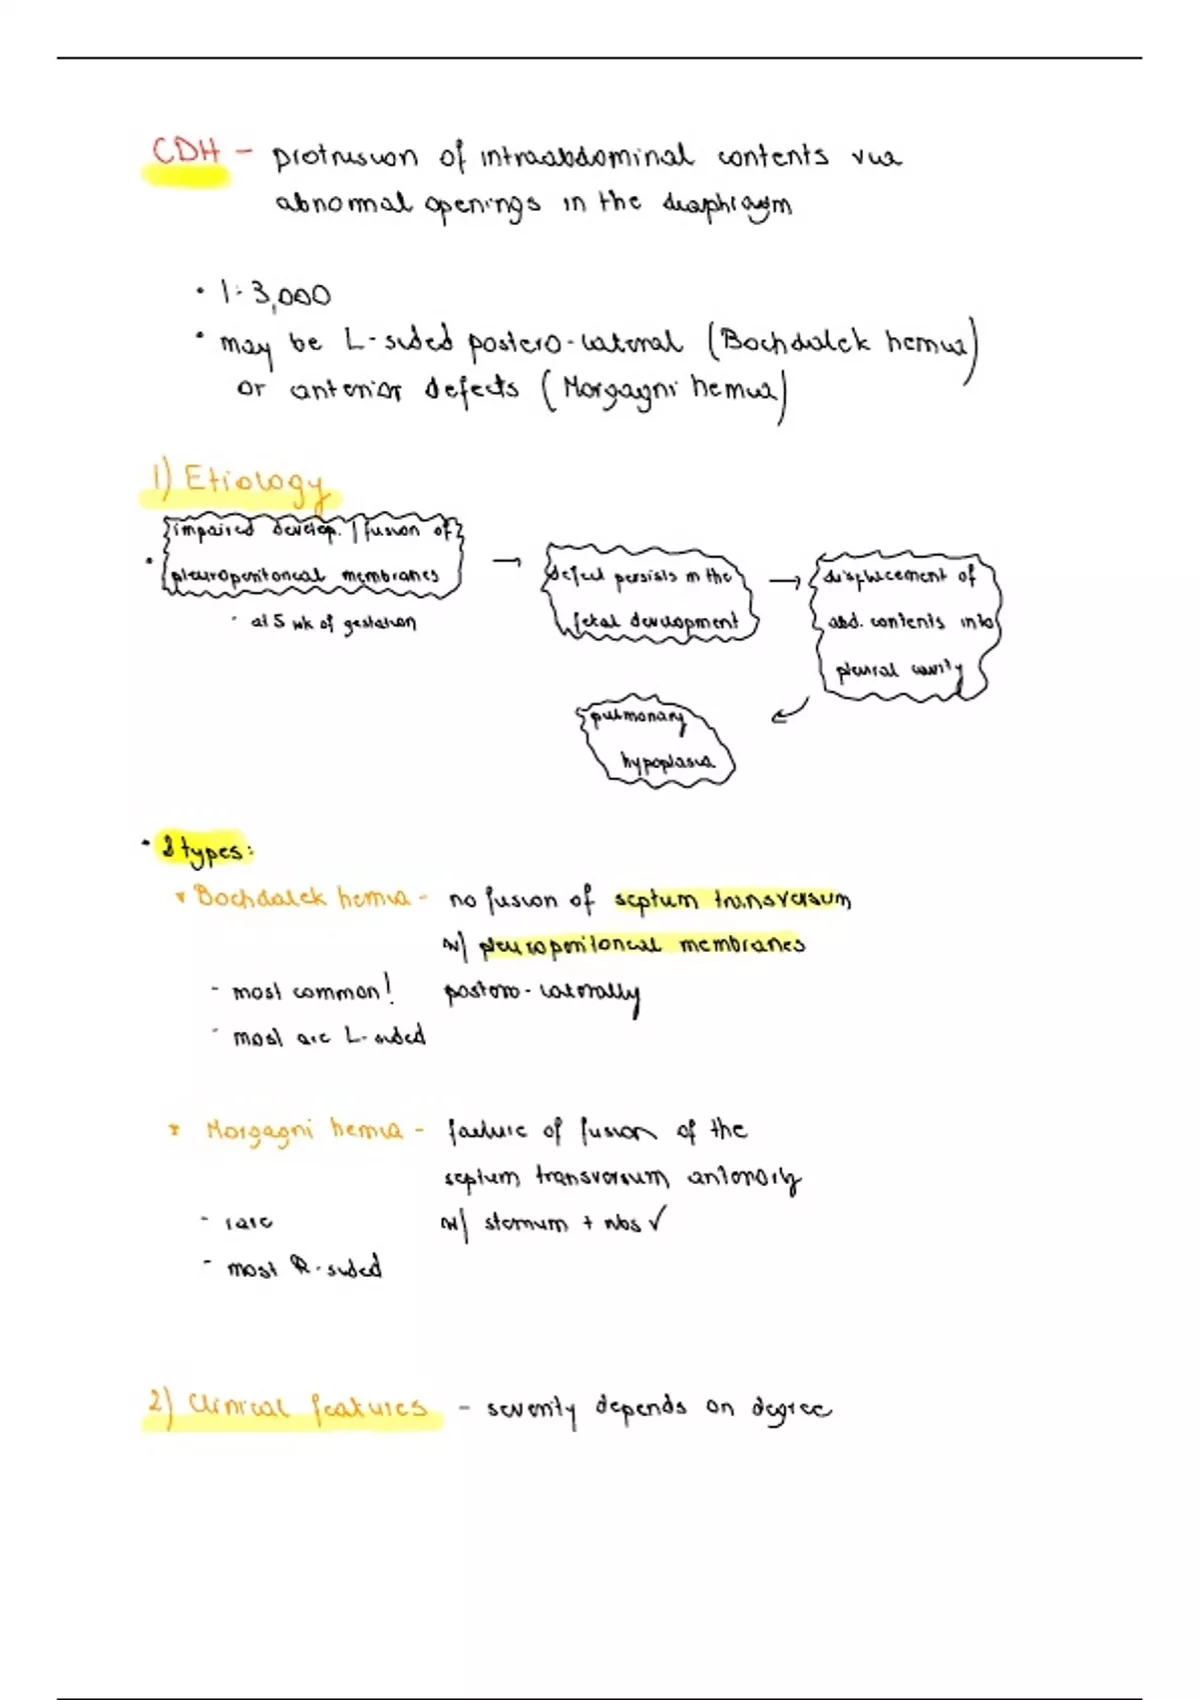 CDH - protrusion of intraabdominal contents via
abnormal openings in the diaphragm
• 1:3,000
• may be L-sided postero-lateral (Bochdalek hernia)
or anterior defects (Morgagni hernia)
1) Etiology
• impaired develop. / fusion of
pleuroperitoneal membranes
- at 5 wk of gestation
→ defect persists in the
fetal development
→ displacement of
abd. contents into
pleural cavity
pulmonary
hypoplasia
• 2 types:
Bochdalek hernia - no fusion of septum transversum
w/ pleuroperitoneal membranes
- most common! postero-laterally
- most are L-sided
Morgagni hernia - failure of fusion of the
septum transversum anteriorly
- rare w/ sternum + ribs ✓
- most R-sided
2) Clinical features - severity depends on degree